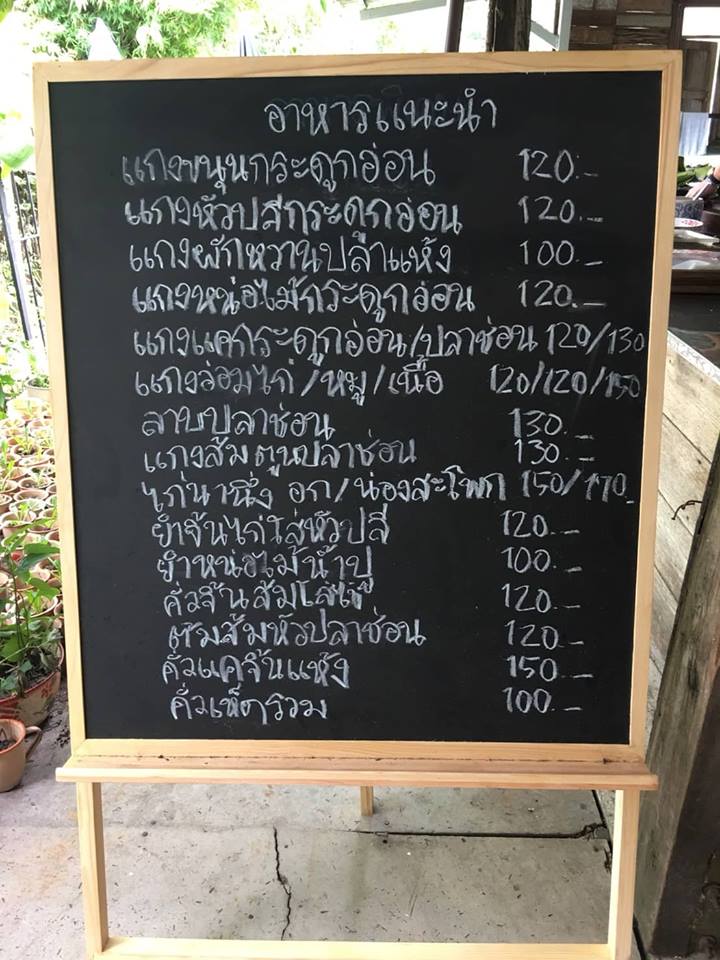 อาหารแนะนำ
แกงขนุนกระดูกอ่อน 120.-
แกงหัวปลีกระดูกอ่อน 120.-
แกงผักหวานปลาแห้ง 100.-
แกงหน่อไม้กระดูกอ่อน 120.-
แกงแคกระดูกอ่อน/ปลาช่อน 120/130
แกงอ่อมไก่/หมู/เนื้อ 120/120/150
ลาบปลาช่อน 130.-
แกงส้มตูนปลาช่อน 130.-
ไก่นานึ่ง อก/น่องสะโพก 150/170.
ยำจิ้นไก่ใส่หัวปลี 120.-
ยำหน่อไม้น้ำปู 100.-
คั่วจิ้นส้มใส่ไข่ 120.-
ต้มส้มหัวปลาช่อน 120.-
คั่วแคจิ้นแห้ง 150.-
คั่วเห็ดรวม 100.-